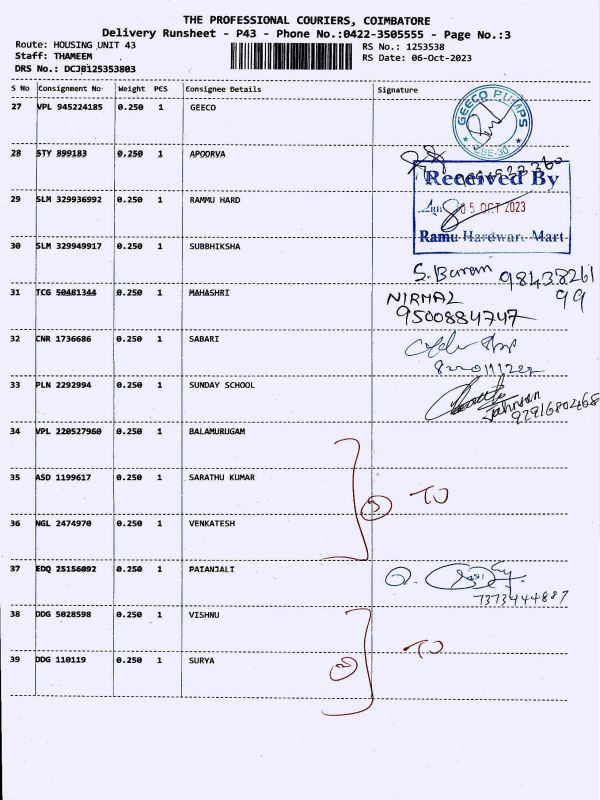 THE PROFESSIONAL COURIERS, COIMBATORE
Delivery Runsheet - P43 - Phone No.:0422-3505555 - Page No.:3
Route: HOUSING UNIT 43 RS No.: 1253538
Staff: THAMEEM RS Date: 06-Oct-2023
DRS No.: DCJ0125353803
S No Consignment No Weight PCS Consignee Details Signature
27 VPL 945224185 0.250 1 GEECO
GEECO PUMPS
28 STY 899183 0.250 1 APOORVA
Received By
29 SLM 329936992 0.250 1 RAMMU HARD
05 OCT 2023
30 SLM 329949917 0.250 1 SUBBHIKSHA
Ramu Hardware Mart
S. Buram 9843826199
31 TCG 50481344 0.250 1 MAHASHRI
NIRMAL
9500884747
32 CNR 1736686 0.250 1 SABARI
33 PLN 2292994 0.250 1 SUNDAY SCHOOL
Johnson
9291680268
34 VPL 220527960 0.250 1 BALAMURUGAM
35 ASD 1199617 0.250 1 SARATHU KUMAR
3 TO
36 NGL 2474970 0.250 1 VENKATESH
37 EDQ 25156092 0.250 1 PATANJALI
7373444887
38 DDG 5028598 0.250 1 VISHNU
2 TO
39 DDG 110119 0.250 1 SURYA